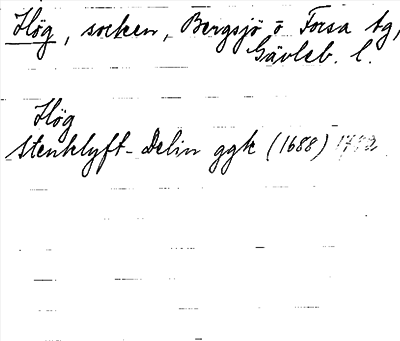 Hög, socken, Bergsjö o Forsa tg,
Gävleb. l.
Hög
Stenklyft - Delin ggk (1688)